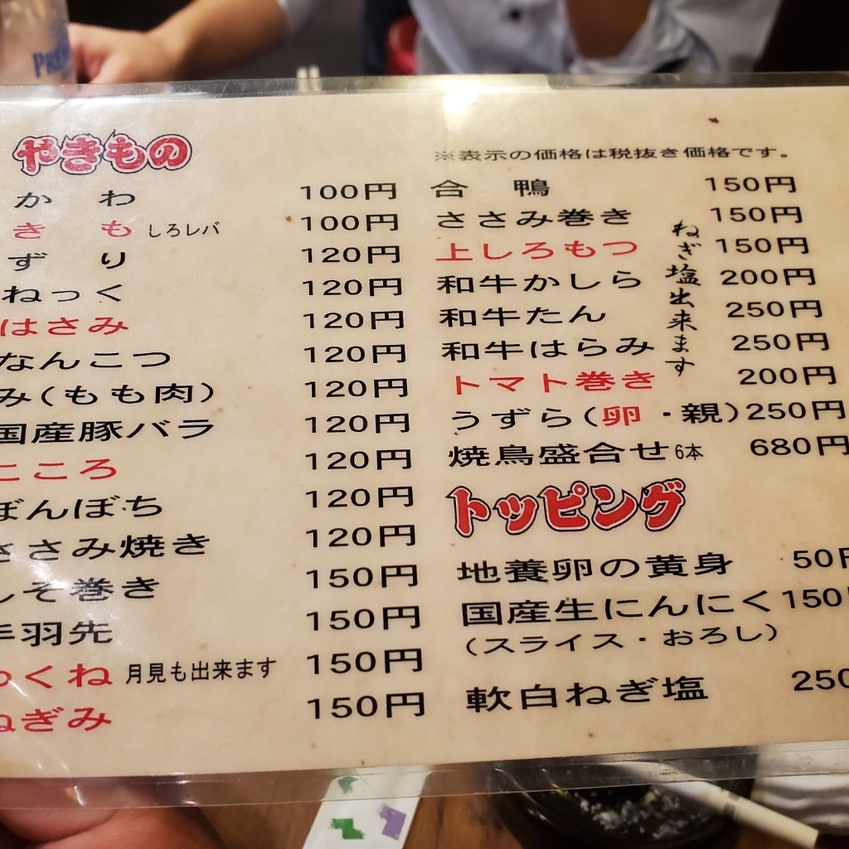 やきもの
かわ 100円
きも しろレバ 100円
ずり 120円
ねっく 120円
はさみ 120円
なんこつ 120円
み(もも肉) 120円
国産豚バラ 120円
こころ 120円
ぼんぼち 120円
ささみ焼き 120円
しそ巻き 150円
手羽先 150円
つくね 月見も出来ます 150円
ねぎみ 150円
※表示の価格は税抜き価格です。
合鴨 150円
ささみ巻き 150円
上しろもつ 150円
和牛かしら 200円
和牛たん 250円
和牛はらみ 250円
トマト巻き 200円
うずら(卵・親) 250円
焼鳥盛合せ 6本 680円
ねぎ塩出来ます
トッピング
地養卵の黄身 50円
国産生にんにく 150
(スライス・おろし)
軟白ねぎ塩 250